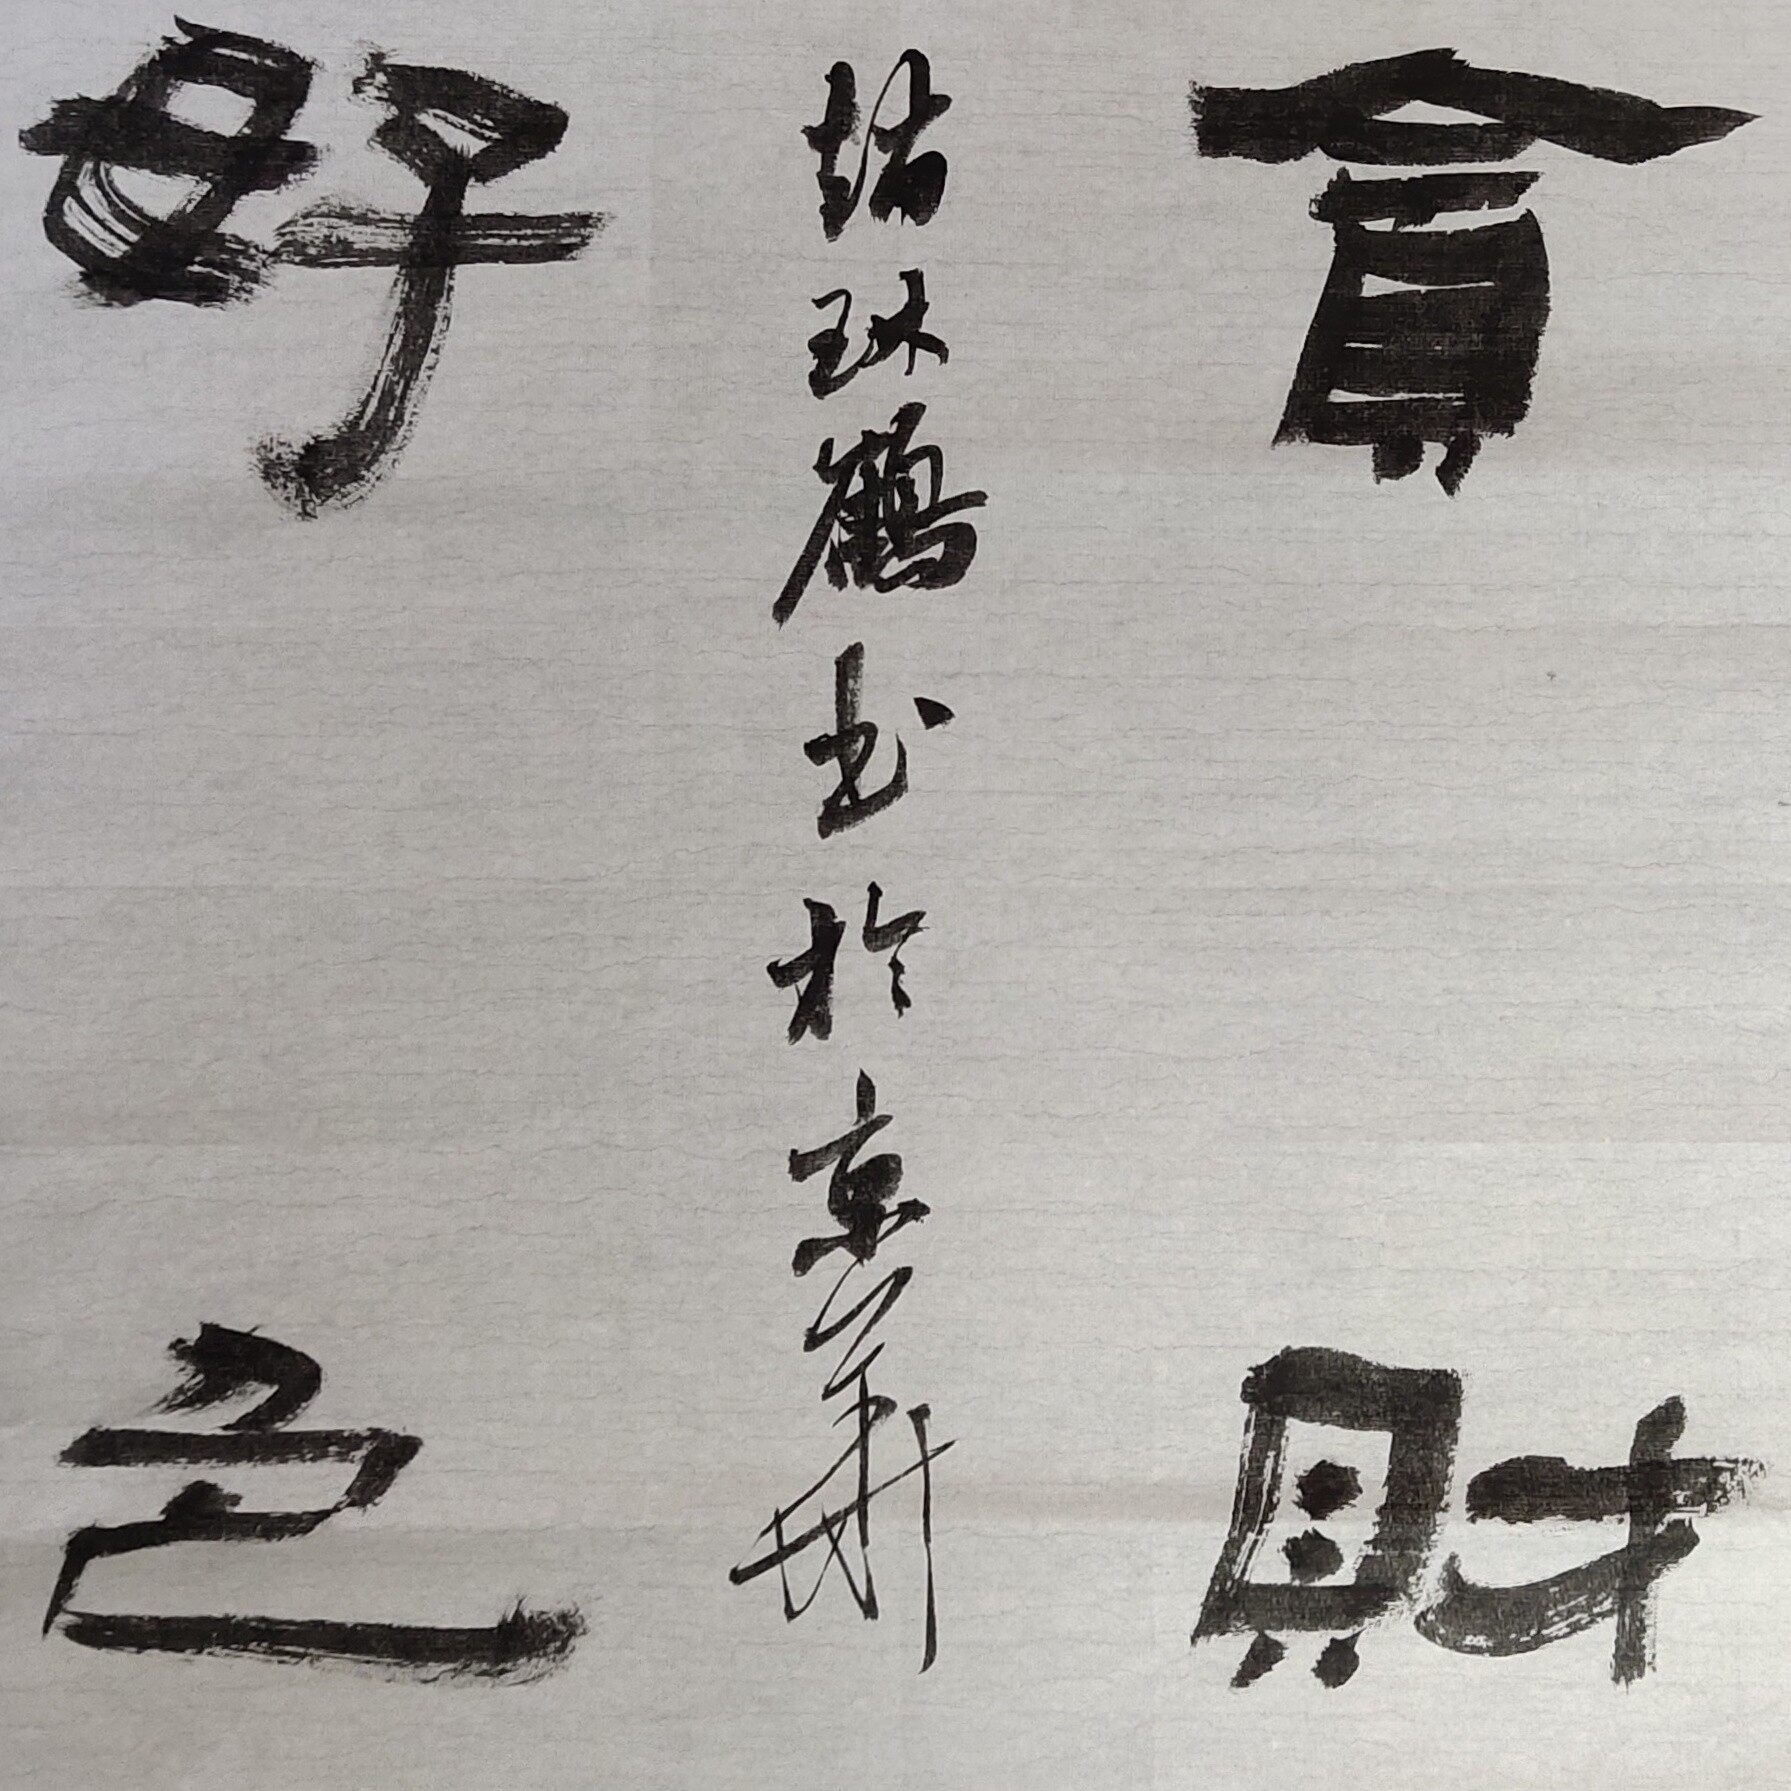 貪財
琳鶴书於京華
好色